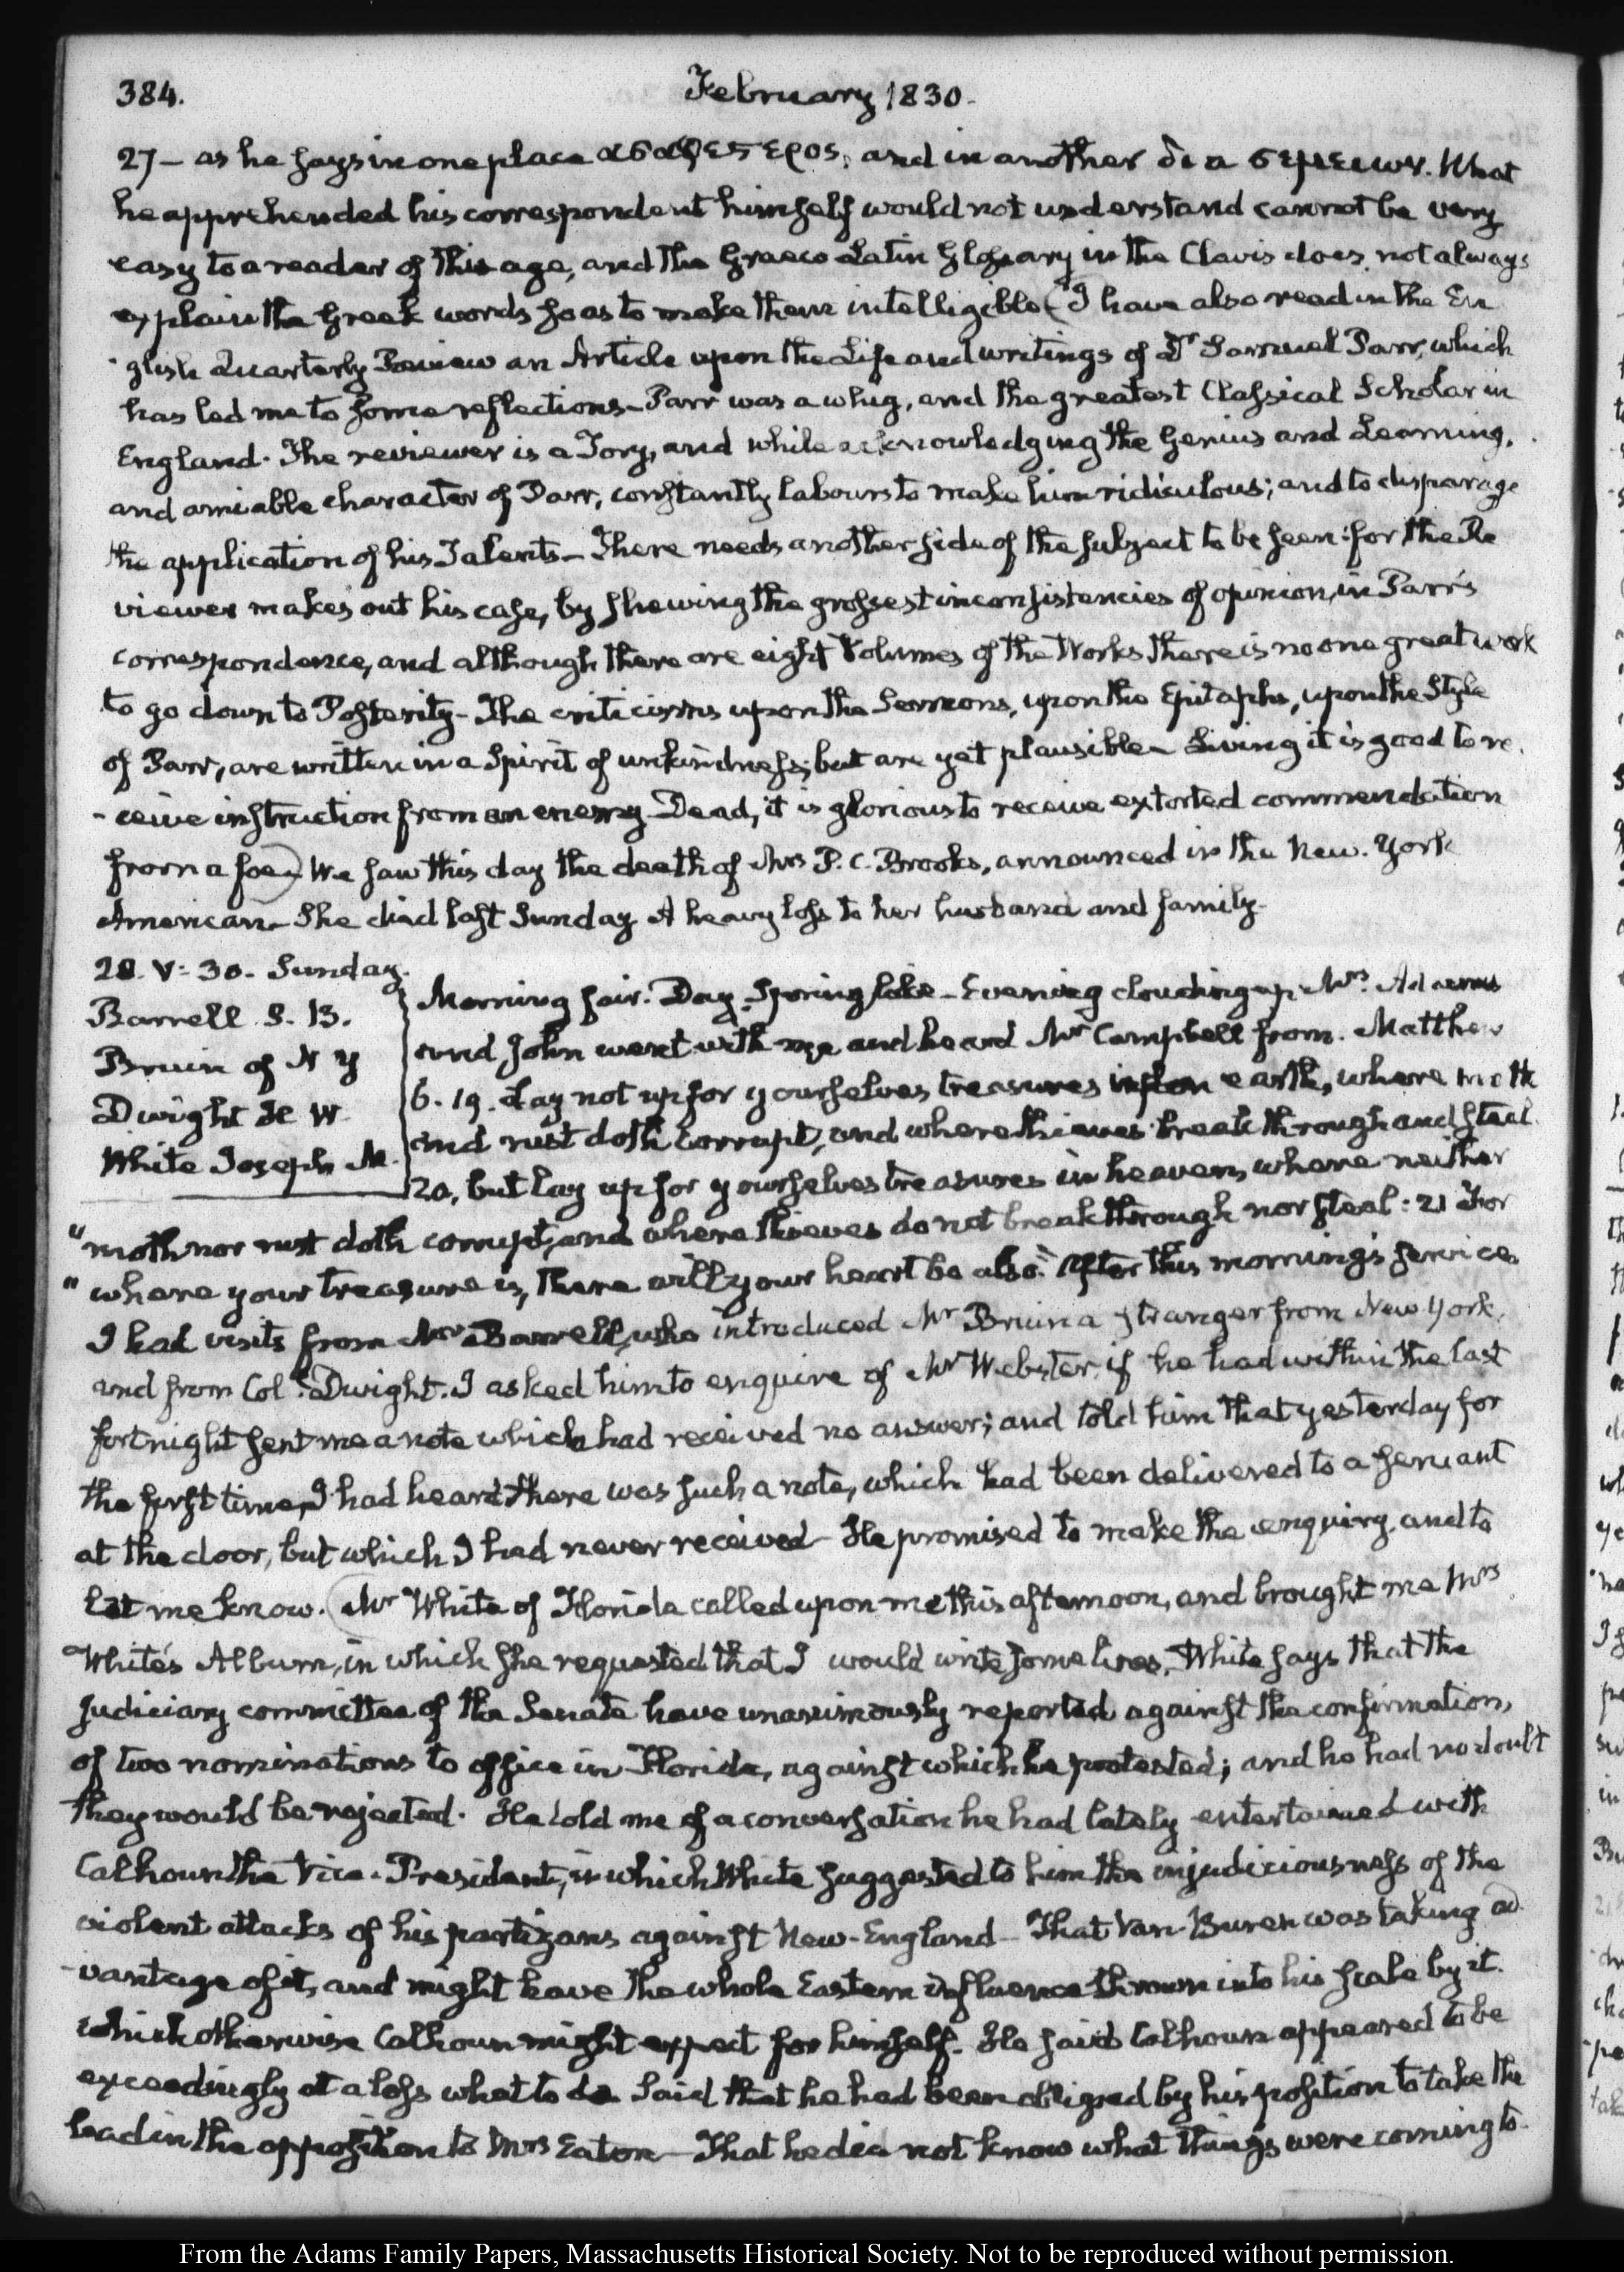 384.
February 1830.
27 - as he says in one place and in another What
he apprehended his correspondent himself would not understand cannot be very
easy to a reader of this age, and the Graeco Latin Glossary in the Clavis does not always
explain the Greek words so as to make them intelligible (I have also read in the En
-glish Quarterly Review an Article upon the Life and writings of Dr Samuel Parr, which
has led me to some reflections - Parr was a whig, and the greatest Classical Scholar in
England. The reviewer is a Tory, and while acknowledging the Genius and Learning,
and amiable character of Parr, constantly labours to make him ridiculous; and to disparage
the application of his Talents - There needs another side of the subject to be seen: for the Re
viewer makes out his case, by shewing the grossest inconsistencies of opinion, in Parr's
correspondence, and although there are eight Volumes of the Works there is no one great work
to go down to Posterity - The criticisms upon the Sermons, upon the Epitaphs, upon the Style
of Parr, are written in a Spirit of unkindness; but are yet plausible - Living it is good to re
-ceive instruction from an enemy - Dead, it is glorious to receive extorted commendation
from a foe) We saw this day the death of Mrs P. C. Brooks, announced in the New-York
American - She died last Sunday A heavy loss to her husband and family -
28. V: 30. Sunday.
Barrell S. B.
Bruin of N Y
Dwight H W
White Joseph M.
Morning fair. Day Spring like - Evening clouding up Mrs. Adams
and John went with me and heard Mr Campbell from Matthew
6. 19. Lay not up for yourselves treasures upon earth, where moth
and rust doth corrupt, and where thieves break through and steal.
20, but lay up for yourselves treasures in heaven, where neither
"moth nor rust doth corrupt, and where thieves do not break through nor steal: 21 For
"where your treasure is, there will your heart be also." After this morning's service
I had visits from Mr Barrell, who introduced Mr Bruin a stranger from New York,
and from Coll. Dwight. I asked him to enquire of Mr Webster, if he had within the last
fortnight sent me a note which had received no answer; and told him that yesterday for
the first time, I had heard there was such a note, which had been delivered to a servant
at the door, but which I had never received - He promised to make the enquiry, and to
let me know. (Mr White of Florida called upon me this afternoon, and brought me Mrs
White's Album, in which she requested that I would write some lines, White says that the
judiciary committee of the Senate have unanimously reported against the confirmation,
of two nominations to office in Florida, against which he protested; and he had no doubt
they would be rejected. He told me of a conversation he had lately entertained with
Calhoun the Vice-President, in which White suggested to him the injudiciousness of the
violent attacks of his partizans against New-England - That Van-Buren was taking ad
-vantage of it, and might have the whole Eastern influence thrown into his scale by it.
which otherwise Calhoun might expect for himself. He said Calhoun appeared to be
exceedingly at a loss what to do said that he had been obliged by his position to take the
lead in the opposition to Mrs Eaton - That he did not know what things were coming to -
From the Adams Family Papers, Massachusetts Historical Society. Not to be reproduced without permission.